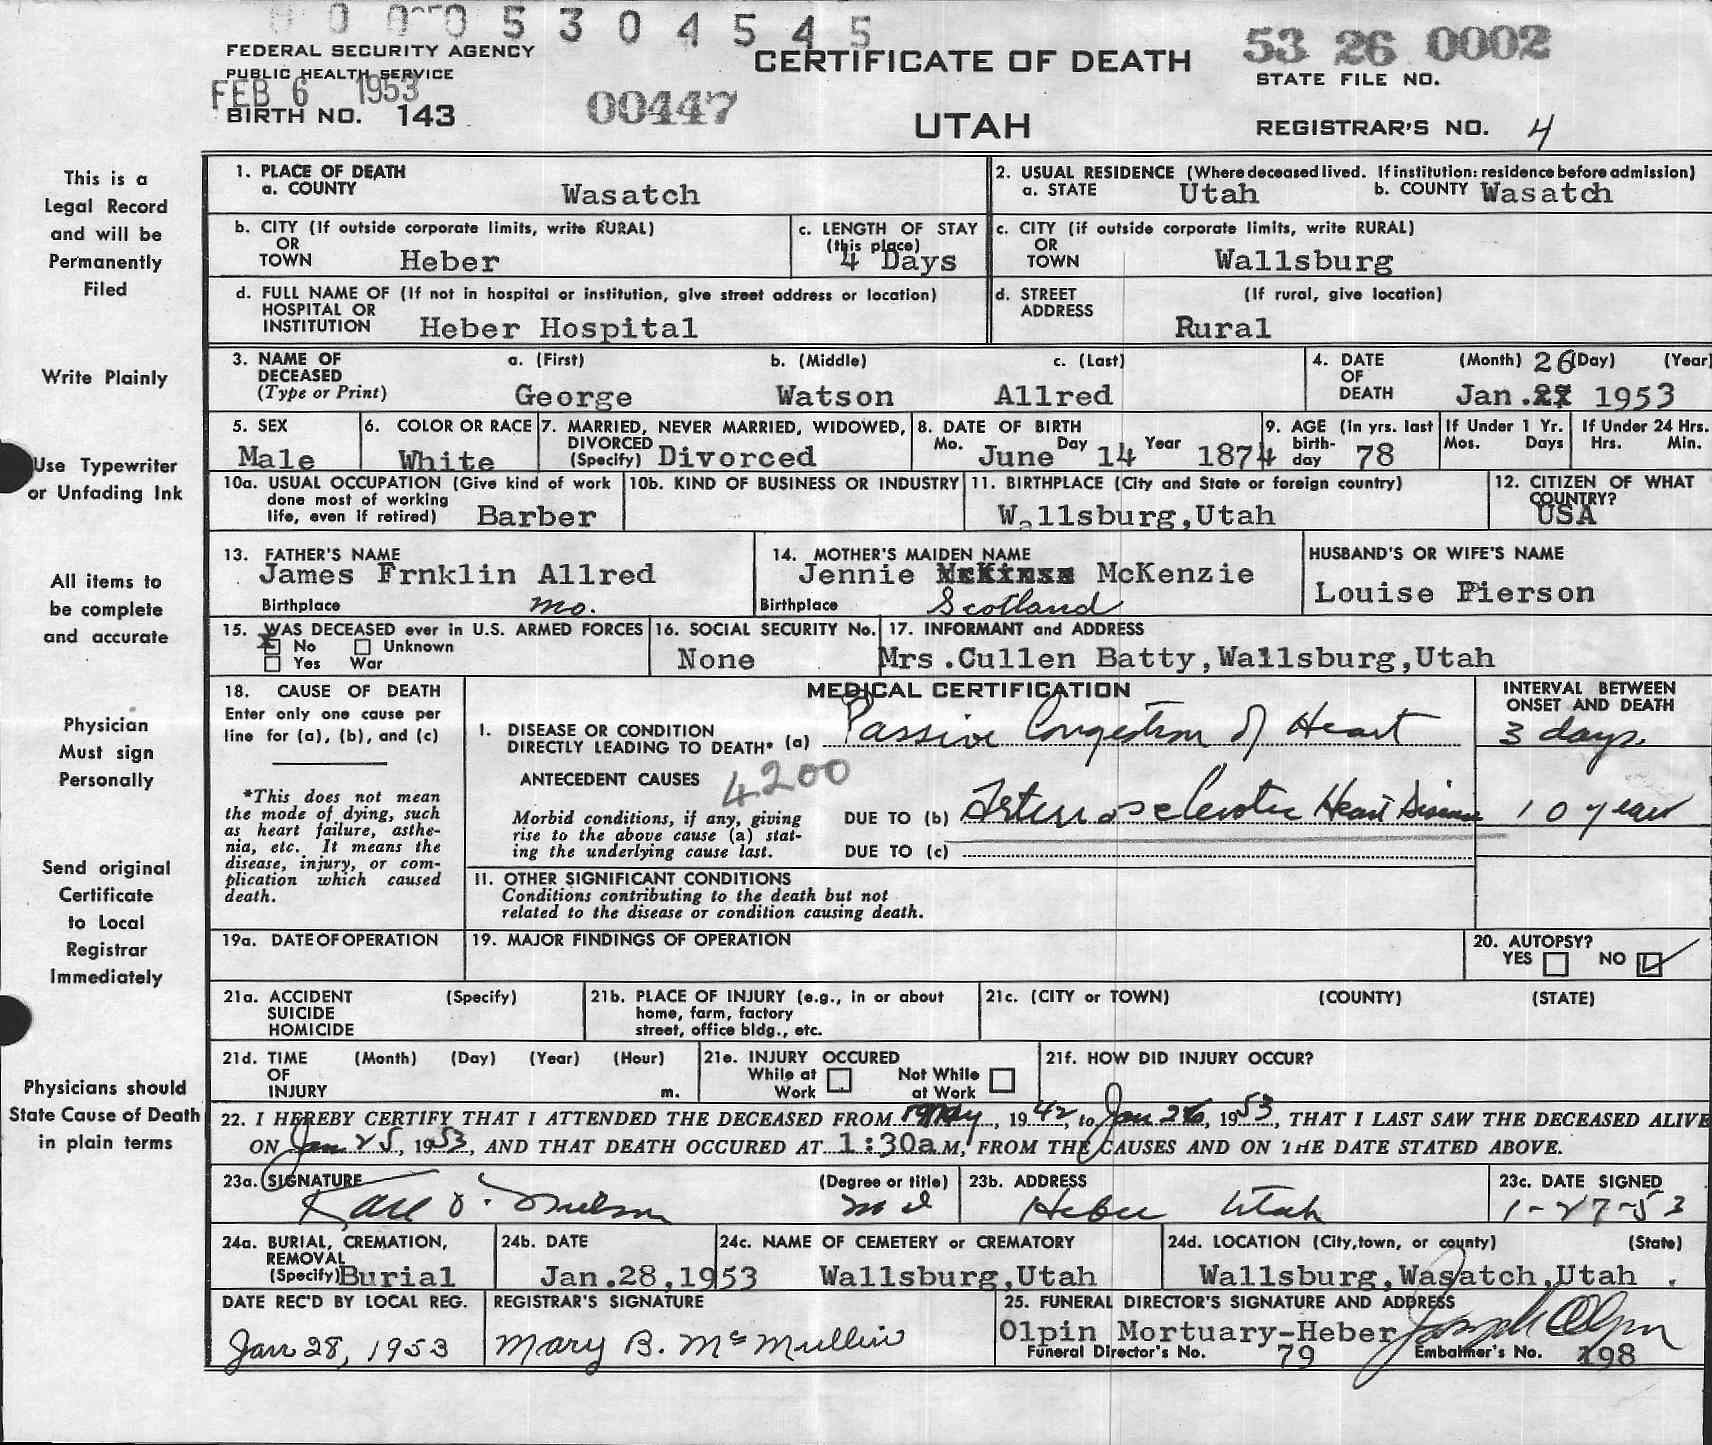 0 0 0 0 5 3 0 4 5 4 5
FEDERAL SECURITY AGENCY
PUBLIC HEALTH SERVICE
FEB 6 1953
BIRTH NO. 143
00447
CERTIFICATE OF DEATH
UTAH
53 26 0002
STATE FILE NO.
REGISTRAR'S NO. 4
This is a
Legal Record
and will be
Permanently
Filed
Write Plainly
Use Typewriter
or Unfading Ink
All items to
be complete
and accurate
Physician
Must sign
Personally
Send original
Certificate
to Local
Registrar
Immediately
Physicians should
State Cause of Death
in plain terms
1. PLACE OF DEATH
a. COUNTY Wasatch
2. USUAL RESIDENCE (Where deceased lived. If institution: residence before admission)
a. STATE Utah b. COUNTY Wasatch
b. CITY (If outside corporate limits, write RURAL)
OR
TOWN Heber
c. LENGTH OF STAY
(this place)
4 Days
c. CITY (if outside corporate limits, write RURAL)
OR
TOWN Wallsburg
d. FULL NAME OF (If not in hospital or institution, give street address or location)
HOSPITAL OR
INSTITUTION Heber Hospital
d. STREET (If rural, give location)
ADDRESS
Rural
3. NAME OF a. (First) b. (Middle) c. (Last)
DECEASED
(Type or Print) George Watson Allred
4. DATE (Month) 26 (Day) (Year)
OF
DEATH Jan.27 1953
5. SEX
Male
6. COLOR OR RACE
White
7. MARRIED, NEVER MARRIED, WIDOWED,
DIVORCED
(Specify) Divorced
8. DATE OF BIRTH
Mo. June Day 14 Year 1874
9. AGE (In yrs. last
birth-
day 78
If Under 1 Yr.
Mos. Days
If Under 24 Hrs.
Hrs. Min.
10a. USUAL OCCUPATION (Give kind of work
done most of working
life, even if retired) Barber
10b. KIND OF BUSINESS OR INDUSTRY
11. BIRTHPLACE (City and State or foreign country)
Wallsburg,Utah
12. CITIZEN OF WHAT
COUNTRY?
USA
13. FATHER'S NAME
James Frnklin Allred
Birthplace Mo.
14. MOTHER'S MAIDEN NAME
Jennie McKenzie
Birthplace Scotland
HUSBAND'S OR WIFE'S NAME
Louise Pierson
15. WAS DECEASED ever in U.S. ARMED FORCES
X No Unknown
Yes War
16. SOCIAL SECURITY No.
None
17. INFORMANT and ADDRESS
Mrs.Cullen Batty,Wallsburg,Utah
18. CAUSE OF DEATH
Enter only one cause per
line for (a), (b), and (c)
*This does not mean
the mode of dying, such
as heart failure, asthe-
nia, etc. It means the
disease, injury, or com-
plication which caused
death.
MEDICAL CERTIFICATION
I. DISEASE OR CONDITION
DIRECTLY LEADING TO DEATH* (a) Passive Congestion of Heart
ANTECEDENT CAUSES 4200
Morbid conditions, if any, giving
rise to the above cause (a) stat-
ing the underlying cause last.
DUE TO (b) Arteriosclerotic Heart Disease
DUE TO (c)
INTERVAL BETWEEN
ONSET AND DEATH
3 days
10 years
11. OTHER SIGNIFICANT CONDITIONS
Conditions contributing to the death but not
related to the disease or condition causing death.
19a. DATE OF OPERATION
19. MAJOR FINDINGS OF OPERATION
20. AUTOPSY?
YES NO ✓
21a. ACCIDENT (Specify)
SUICIDE
HOMICIDE
21b. PLACE OF INJURY (e.g., in or about
home, farm, factory
street, office bldg., etc.
21c. (CITY or TOWN) (COUNTY) (STATE)
21d. TIME (Month) (Day) (Year) (Hour)
OF
INJURY m.
21e. INJURY OCCURED
While at Not While
Work at Work
21f. HOW DID INJURY OCCUR?
22. I HEREBY CERTIFY THAT I ATTENDED THE DECEASED FROM May, 1942, to Jan 26, 1953, THAT I LAST SAW THE DECEASED ALIVE
ON Jan 25, 1953, AND THAT DEATH OCCURED AT 1:30a M, FROM THE CAUSES AND ON THE DATE STATED ABOVE.
23a. SIGNATURE (Degree or title)
Karl O. Nielson MD
23b. ADDRESS
Heber Utah
23c. DATE SIGNED
1-27-53
24a. BURIAL, CREMATION,
REMOVAL
(Specify) Burial
24b. DATE
Jan.28,1953
24c. NAME OF CEMETERY or CREMATORY
Wallsburg,Utah
24d. LOCATION (City,town, or county) (State)
Wallsburg,Wasatch,Utah .
DATE REC'D BY LOCAL REG.
Jan 28, 1953
REGISTRAR'S SIGNATURE
Mary B. McMullin
25. FUNERAL DIRECTOR'S SIGNATURE AND ADDRESS
Olpin Mortuary-Heber Joseph Olpin
Funeral Director's No. 79 Embalmer's No. 198